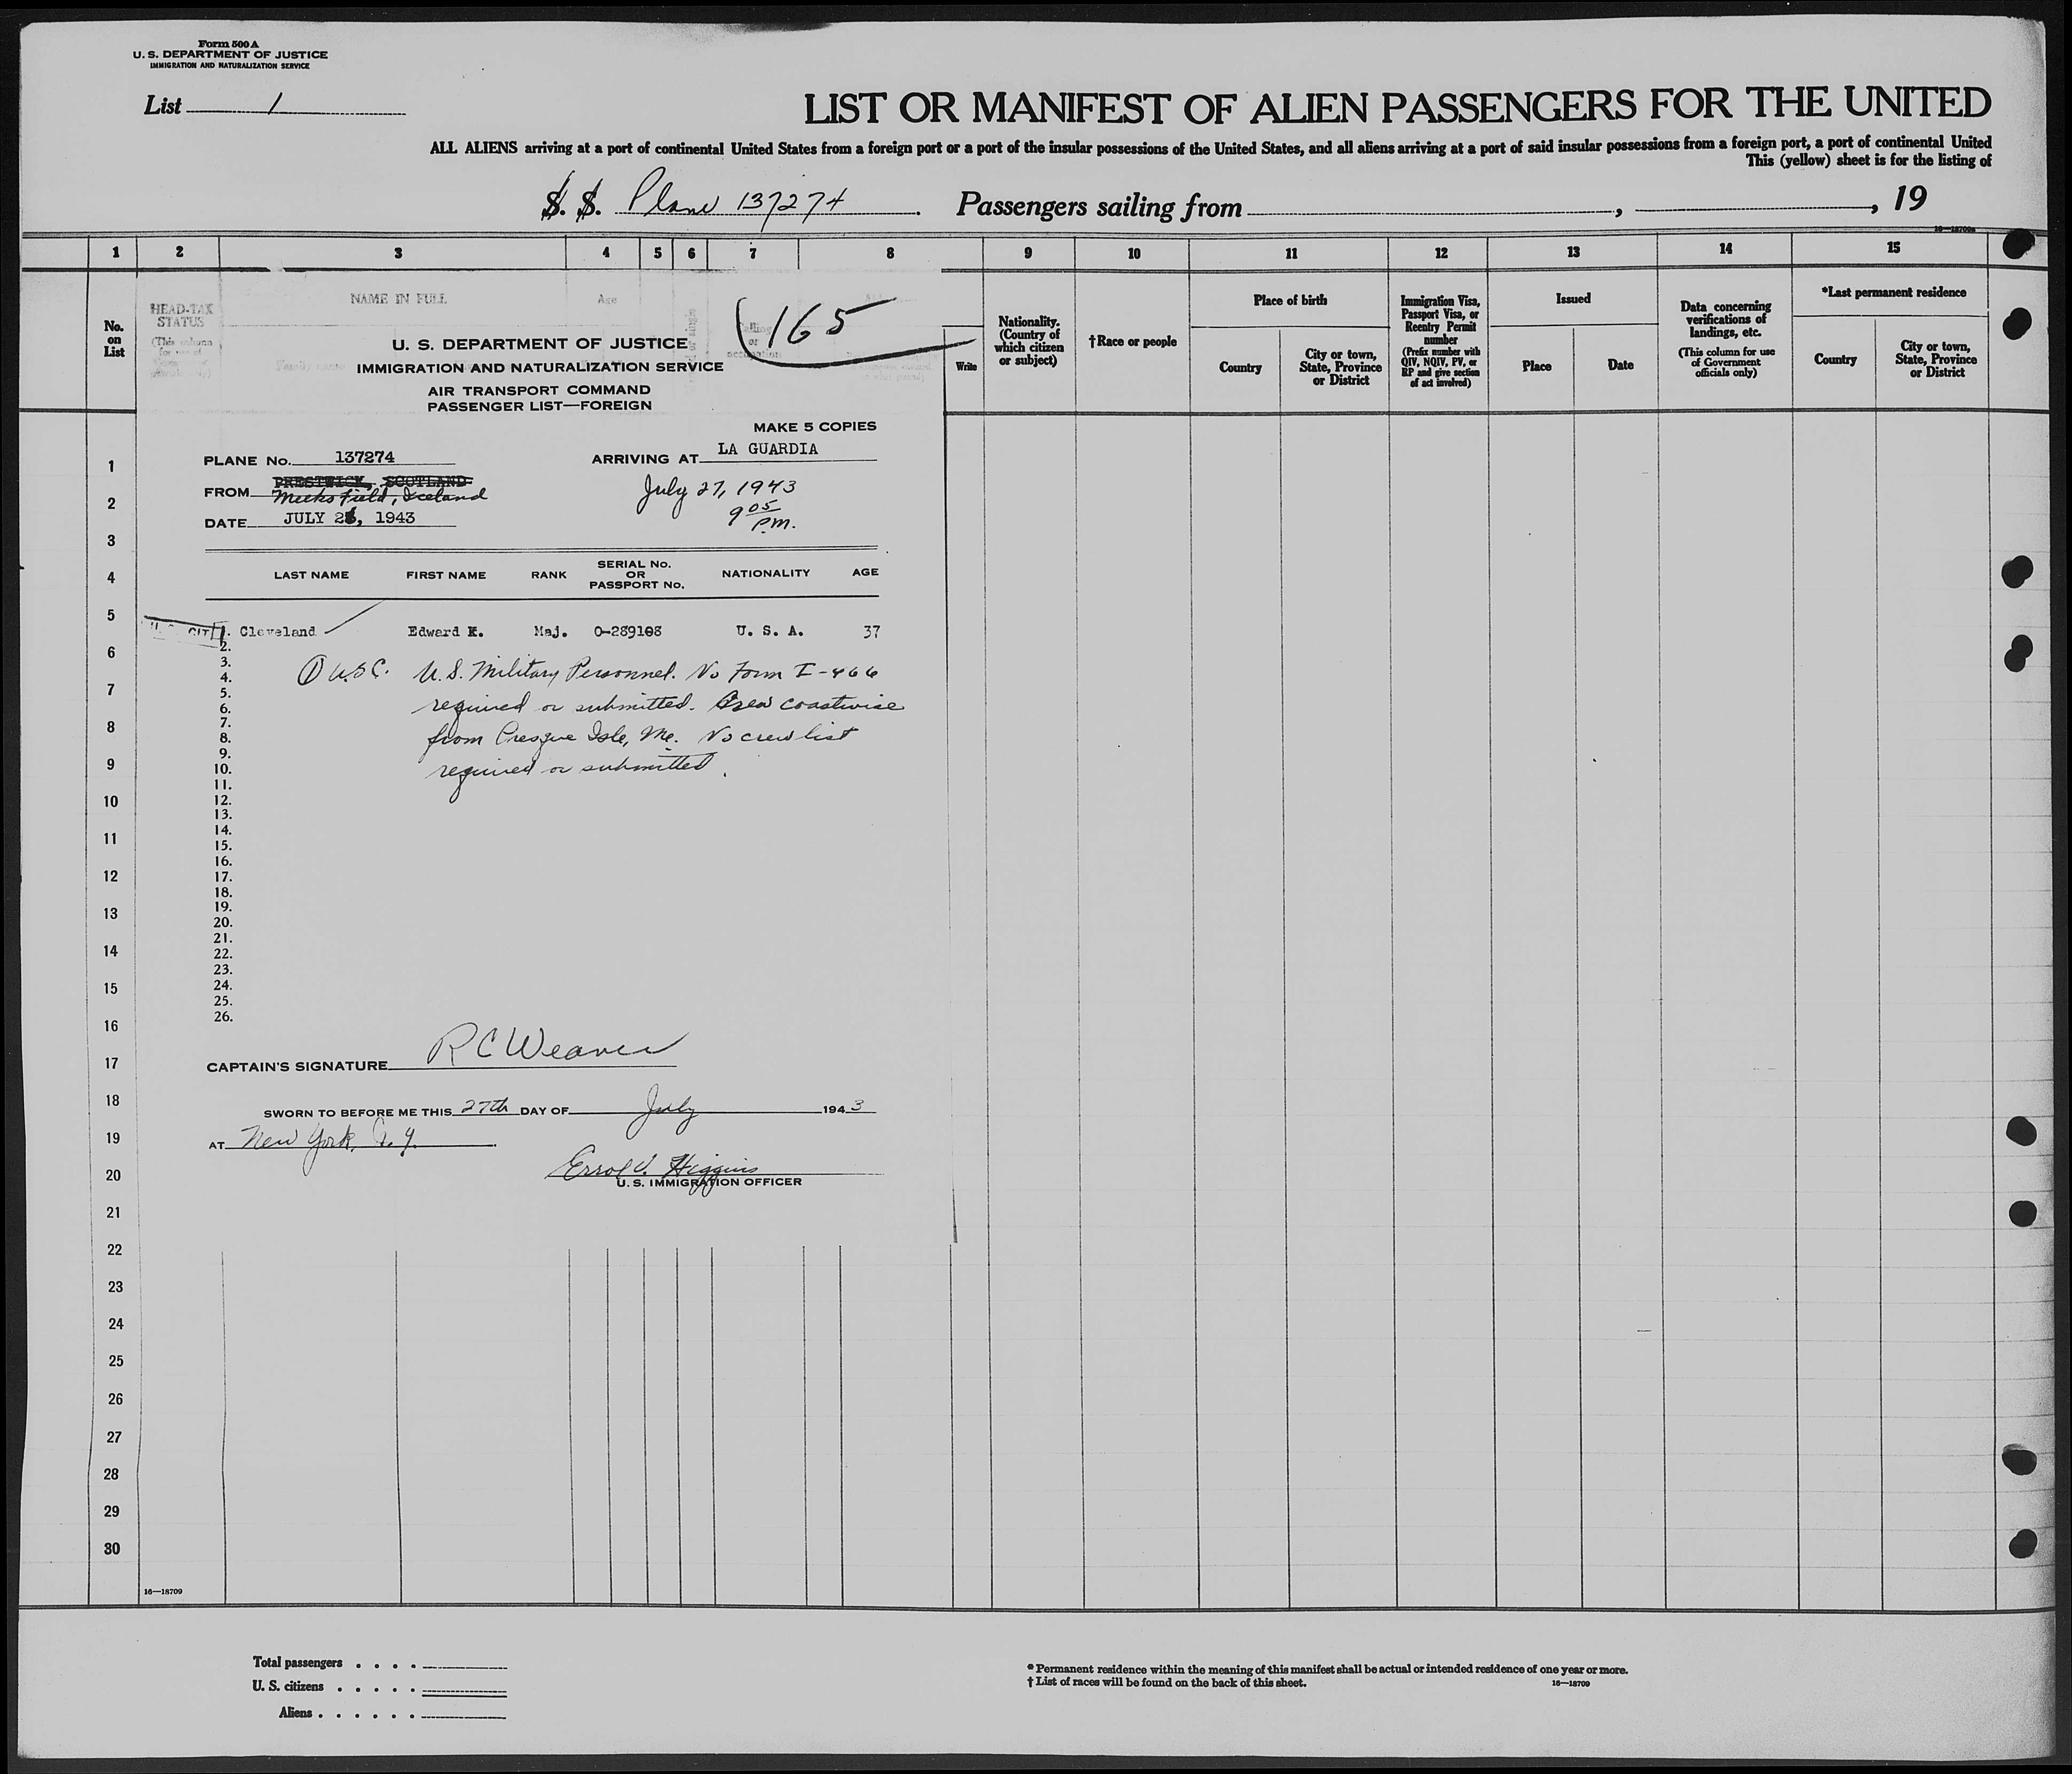 Form 500 A
U. S. DEPARTMENT OF JUSTICE
IMMIGRATION AND NATURALIZATION SERVICE
List 1
LIST OR MANIFEST OF ALIEN PASSENGERS FOR THE UNITED
ALL ALIENS arriving at a port of continental United States from a foreign port or a port of the insular possessions of the United States, and all aliens arriving at a port of said insular possessions from a foreign port, a port of continental United
This (yellow) sheet is for the listing of
S. S. Plane 137274 . Passengers sailing from , , 19
1 2 3 4 5 6 7 8 9 10 11 12 13 14 15
HEAD-TAX STATUS
NAME IN FULL
Age
165
No. on List
Write
Nationality. (Country of which citizen or subject)
†Race or people
Place of birth
Country
City or town, State, Province or District
Immigration Visa, Passport Visa, or Reentry Permit number
(Prefix number with QIV, NQIV, PV, or RP and give section of act involved)
Issued
Place
Date
Data concerning verifications of landings, etc.
(This column for use of Government officials only)
*Last permanent residence
Country
City or town, State, Province or District
U. S. DEPARTMENT OF JUSTICE
IMMIGRATION AND NATURALIZATION SERVICE
AIR TRANSPORT COMMAND
PASSENGER LIST—FOREIGN
MAKE 5 COPIES
PLANE No. 137274
ARRIVING AT LA GUARDIA
PRESTWICK, SCOTLAND
FROM Meeks Field, Iceland
July 27, 1943
DATE JULY 26, 1943
9 05 P.M.
LAST NAME FIRST NAME RANK SERIAL No. OR PASSPORT No. NATIONALITY AGE
1. Cleveland Edward K. Maj. O-289108 U. S. A. 37
2.
3.
4.
5.
6.
7.
8.
9.
10.
11.
12.
13.
14.
15.
16.
17.
18.
19.
20.
21.
22.
23.
24.
25.
26.
1 U.S.C. U.S. Military Personnel. No Form I-466
required or submitted. Crew coastwise
from Presque Isle, Me. No crew list
required or submitted.
CAPTAIN'S SIGNATURE R C Weaver
SWORN TO BEFORE ME THIS 27th DAY OF July 1943
AT New York, N.Y.
Errol V. Higgins
U. S. IMMIGRATION OFFICER
1
2
3
4
5
6
7
8
9
10
11
12
13
14
15
16
17
18
19
20
21
22
23
24
25
26
27
28
29
30
16—18709
Total passengers . . . .
U. S. citizens . . . . .
Aliens . . . . . .
* Permanent residence within the meaning of this manifest shall be actual or intended residence of one year or more.
† List of races will be found on the back of this sheet. 16—18709